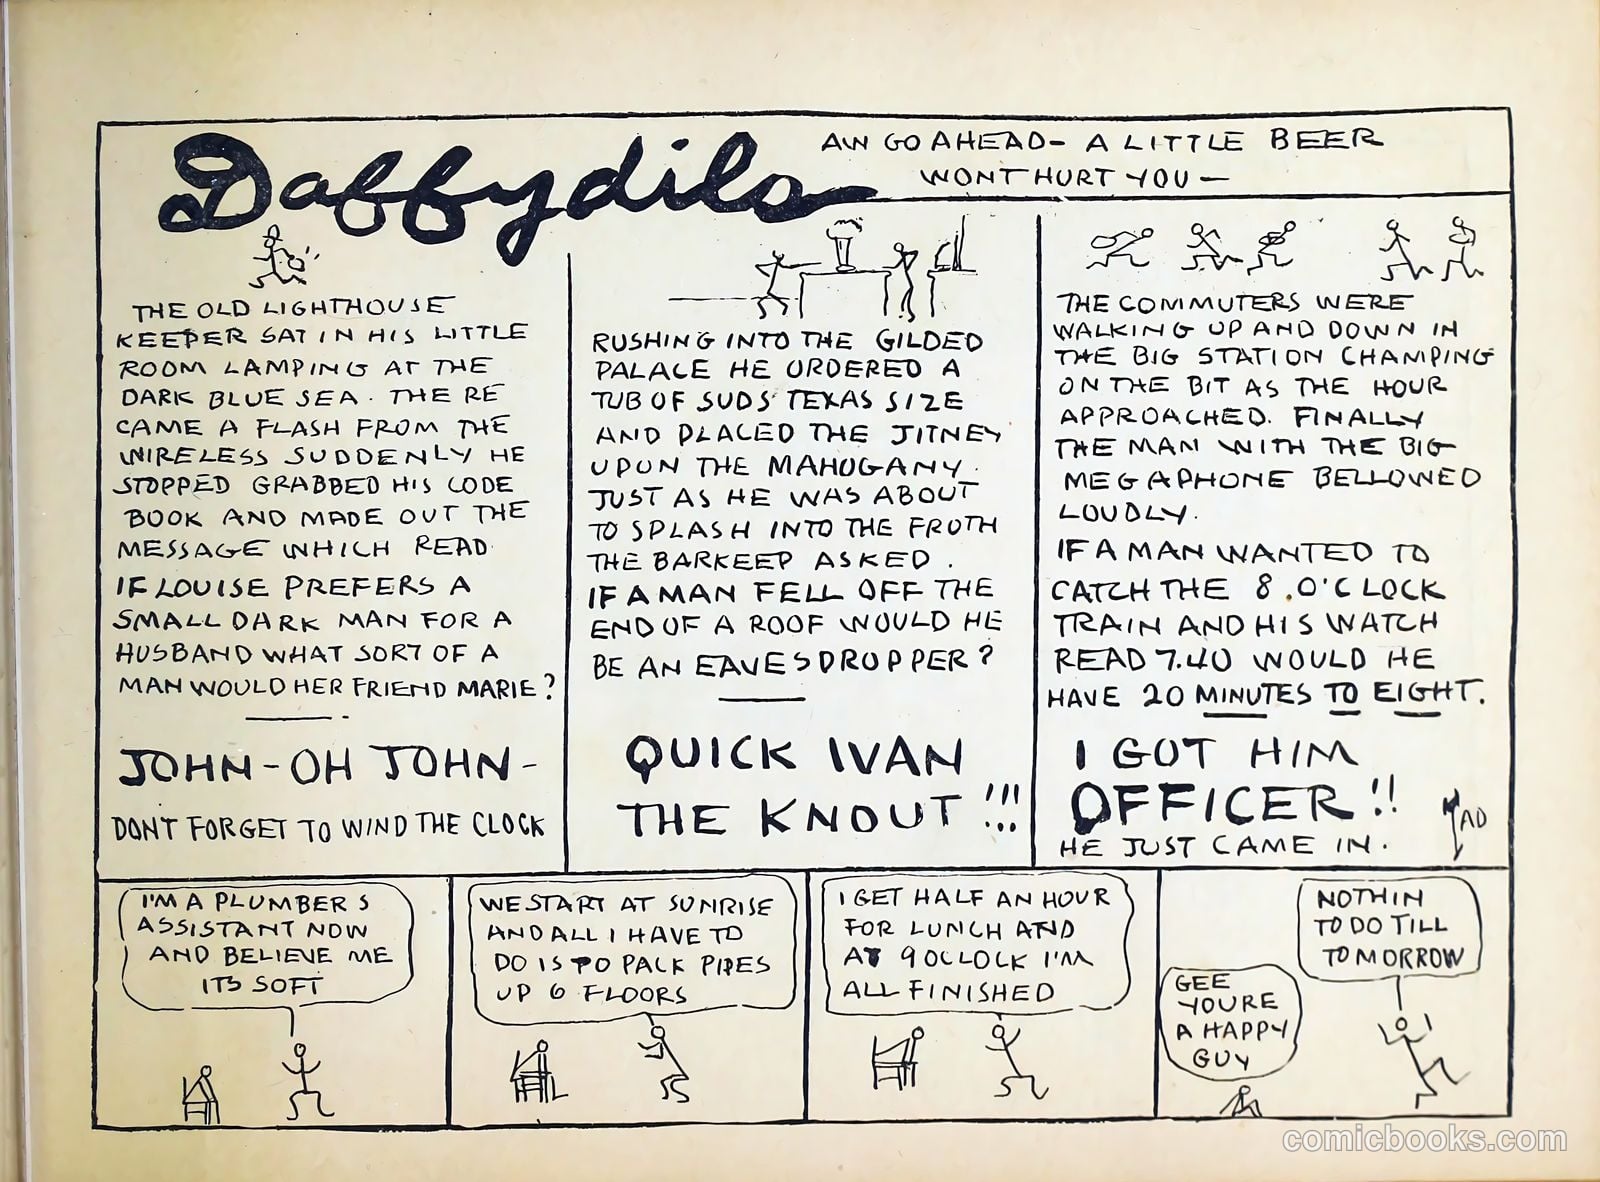 Daffydils
AW GO AHEAD- A LITTLE BEER
WONT HURT YOU-
THE OLD LIGHTHOUSE
KEEPER SAT IN HIS LITTLE
ROOM LAMPING AT THE
DARK BLUE SEA. THERE
CAME A FLASH FROM THE
WIRELESS SUDDENLY HE
STOPPED GRABBED HIS CODE
BOOK AND MADE OUT THE
MESSAGE WHICH READ.
IF LOUISE PREFERS A
SMALL DARK MAN FOR A
HUSBAND WHAT SORT OF A
MAN WOULD HER FRIEND MARIE?
JOHN-OH JOHN-
DON'T FORGET TO WIND THE CLOCK
RUSHING INTO THE GILDED
PALACE HE ORDERED A
TUB OF SUDS TEXAS SIZE
AND PLACED THE JITNEY
UPON THE MAHOGANY.
JUST AS HE WAS ABOUT
TO SPLASH INTO THE FROTH
THE BARKEEP ASKED.
IF A MAN FELL OFF THE
END OF A ROOF WOULD HE
BE AN EAVESDROPPER?
QUICK IVAN
THE KNOUT!!!
THE COMMUTERS WERE
WALKING UP AND DOWN IN
THE BIG STATION CHAMPING
ON THE BIT AS THE HOUR
APPROACHED. FINALLY
THE MAN WITH THE BIG
MEGAPHONE BELLOWED
LOUDLY.
IF A MAN WANTED TO
CATCH THE 8.O'CLOCK
TRAIN AND HIS WATCH
READ 7.40 WOULD HE
HAVE 20 MINUTES TO EIGHT.
I GOT HIM
OFFICER!!
HE JUST CAME IN.
TAD
I'M A PLUMBERS
ASSISTANT NOW
AND BELIEVE ME
ITS SOFT
WE START AT SUNRISE
AND ALL I HAVE TO
DO IS TO PACK PIPES
UP 6 FLOORS
I GET HALF AN HOUR
FOR LUNCH AND
AT 9 OCLOCK I'M
ALL FINISHED
GEE
YOURE
A HAPPY
GUY
NOTHIN
TO DO TILL
TOMORROW
comicbooks.com